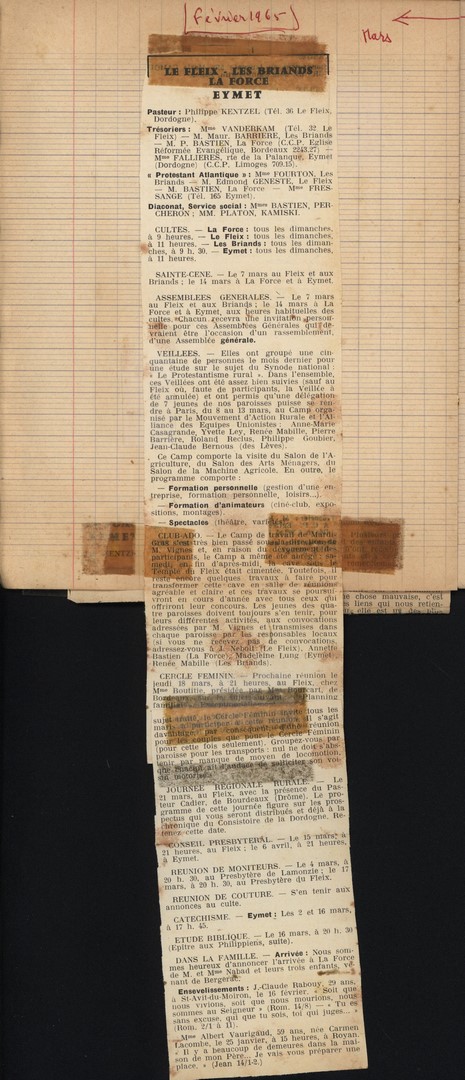 [février 1965]
Mars
LE FLEIX - LES BRIANDS
LA FORCE
EYMET
Pasteur : Philippe KENTZEL (Tél. 36 Le Fleix,
Dordogne).
Trésoriers : Mme VANDERKAM (Tél. 32 Le
Fleix) — M. Maur. BARRIERE, Les Briands
— M. P. BASTIEN, La Force (C.C.P. Eglise
Réformée Evangélique, Bordeaux 2243.27) —
Mme FALLIERES, rte de la Palanque, Eymet
(Dordogne) (C.C.P. Limoges 709.15).
« Protestant Atlantique » : Mme FOURTON, Les
Briands — M. Edmond GENESTE, Le Fleix
— M. BASTIEN, La Force — Mme FRES-
SANGE (Tél. 165 Eymet).
Diaconat, Service social : Mmes BASTIEN, PER-
CHERON ; MM. PLATON, KAMISKI.
CULTES. — La Force : tous les dimanches,
à 9 heures. — Le Fleix : tous les dimanches,
à 11 heures. — Les Briands : tous les diman-
ches, à 9 h. 30. — Eymet : tous les dimanches,
à 11 heures.
SAINTE-CENE. — Le 7 mars au Fleix et aux
Briands ; le 14 mars à La Force et à Eymet.
ASSEMBLEES GENERALES. — Le 7 mars
au Fleix et aux Briands ; le 14 mars à La
Force et à Eymet, aux heures habituelles des
cultes. Chacun recevra une invitation person-
nelle pour ces Assemblées Générales qui de-
vraient être l'occasion d'un rassemblement,
d'une Assemblée générale.
VEILLEES. — Elles ont groupé une cin-
quantaine de personnes le mois dernier pour
une étude sur le sujet du Synode national :
« Le Protestantisme rural ». Dans l'ensemble,
ces Veillées ont été assez bien suivies (sauf au
Fleix où, faute de participants, la Veillée a
été annulée) et ont permis qu'une délégation
de 7 jeunes de nos paroisses puisse se ren-
dre à Paris, du 8 au 13 mars, au Camp orga-
nisé par le Mouvement d'Action Rurale et l'Al-
liance des Equipes Unionistes : Anne-Marie
Casagrande, Yvette Ley, Renée Mabille, Pierre
Barrière, Roland Reclus, Philippe Gouhier,
Jean-Claude Bernous (des Lèves).
Ce Camp comporte la visite du Salon de l'A-
griculture, du Salon des Arts Ménagers, du
Salon de la Machine Agricole. En outre, le
programme comporte :
— Formation personnelle (gestion d'une en-
treprise, formation personnelle, loisirs...).
— Formation d'animateurs (ciné-club, expo-
sitions, montages).
— Spectacles (théâtre,
CLUB-ADO. — Le Camp de Mardi-
Gras s'est très bien passé sous la direction de
M. Vignes et, en raison du
participants, le Camp a même été abrégé : sa-
medi, en fin d'après-midi, la cave sous le
Temple du Fleix était cimentée. Toutefois, il
reste encore quelques travaux à faire pour
transformer cette cave en salle de réunion
agréable et claire et ces travaux se poursui-
vront en cours d'année avec tous ceux qui
offriront leur concours. Les jeunes des qua-
tre paroisses doivent toujours s'en tenir, pour
leurs différentes activités, aux convocations
adressées par M. Vignes et transmises dans
chaque paroisse par les responsables locaux
(si vous ne recevez pas de convocations,
adressez-vous à J. Nebout (Le Fleix), Annette
Bastien (La Force), Madeleine Lung (Eymet),
Renée Mabille (Les Briands).
chose mauvaise, c'est
liens qui nous retien-
CERCLE FEMININ. — Prochaine réunion le
jeudi 18 mars, à 21 heures, au Fleix, chez
Mme Boutitie, présidée par Mme
Planning
tous les
s'agit
réunion
pour les couples que pour le Cercle Féminin
(pour cette fois seulement). Groupez-vous par
paroisse pour les transports : nul ne doit s'abs-
tenir par manque de moyen de locomotion,
JOURNEE REGIONALE RURALE. — Le
21 mars, au Fleix, avec la présence du Pas-
teur Cadier, de Bourdeaux (Drôme). Le pro-
gramme de cette journée figure sur les pros-
pectus qui vous seront distribués et déjà à la
chronique du Consistoire de la Dordogne. Re-
tenez cette date.
CONSEIL PRESBYTERAL. — Le 15 mars, à
21 heures, au Fleix ; le 6 avril, à 21 heures,
à Eymet.
REUNION DE MONITEURS. — Le 4 mars, à
20 h. 30, au Presbytère de Lamonzie ; le 17
mars, à 20 h. 30, au Presbytère du Fleix.
REUNION DE COUTURE. — S'en tenir aux
annonces au culte.
CATECHISME. — Eymet : Les 2 et 16 mars,
à 17 h. 45.
ETUDE BIBLIQUE. — Le 16 mars, à 20 h. 30
(Epitre aux Philippiens, suite).
DANS LA FAMILLE. — Arrivée : Nous som-
mes heureux d'annoncer l'arrivée à La Force
de M. et Mme Nabad et leurs trois enfants, ve-
nant de Bergerac.
Ensevelissements : J.-Claude Rabouy, 29 ans,
à St-Avit-du-Moiron, le 16 février. « Soit que
nous vivions, soit que nous mourions, nous
sommes au Seigneur » (Rom. 14/8) — « Tu es
sans excuse, qui que tu sois, toi qui juges... »
(Rom. 2/1 à 11).
Mme Albert Vaurigaud, 59 ans, née Carmen
Lacombe, le 25 janvier, à 15 heures, à Royan.
« Il y a beaucoup de demeures dans la mai-
son de mon Père... Je vais vous préparer une
place. » (Jean 14/1-2.)